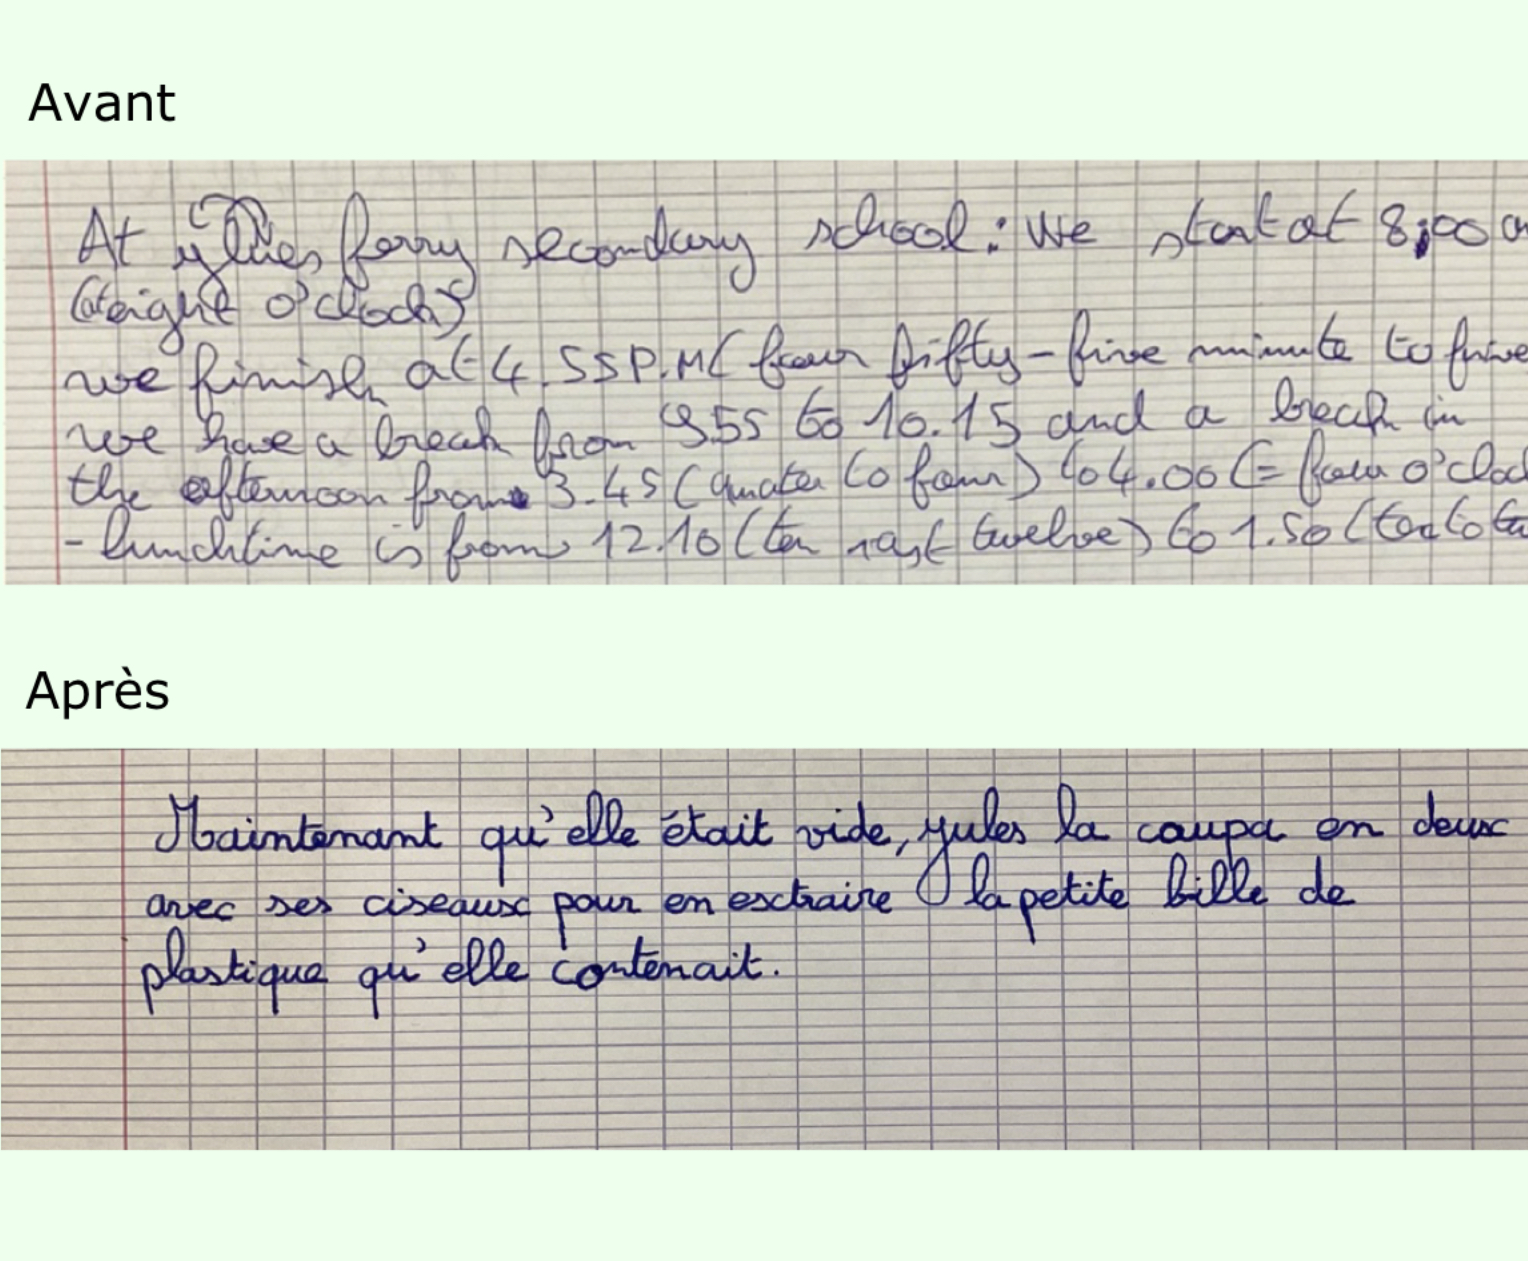 Avant
At jules ferry secondary school: We start at 8,00 a
(at eight o'clock)
we finish at 4.55P.M( four fifty-five minute to five
we have a break from 9.55 to 10.15 and a break in
the afternoon from 3.45 (quater to four) to 4.00 (= four o'cloc
- lunchtime is from 12.10 (ten past twelve) to 1.50 (ten to tw
Après
Maintenant qu'elle était vide, jules la coupa en deux
avec ses ciseaux pour en extraire la petite bille de
plastique qu'elle contenait.